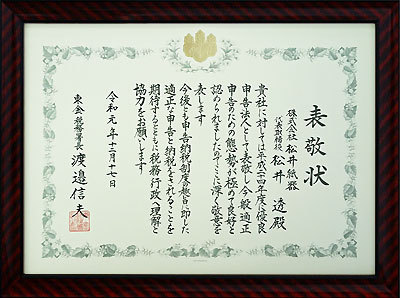 表敬状
株式会社 松井紙器
代表取締役 松井 透殿
貴社に対しては平成二四年度に優良
申告法人として表敬し今般適正
申告のための態勢が極めて良好と
認められましたのでここに深く敬意を
表します
今後とも申告納税制度の趣旨に即した
適正な申告と納税をされることを
期待するとともに税務行政へ理解と
協力をお願いします
令和元年十二月十七日
東金税務署長 渡邉信夫